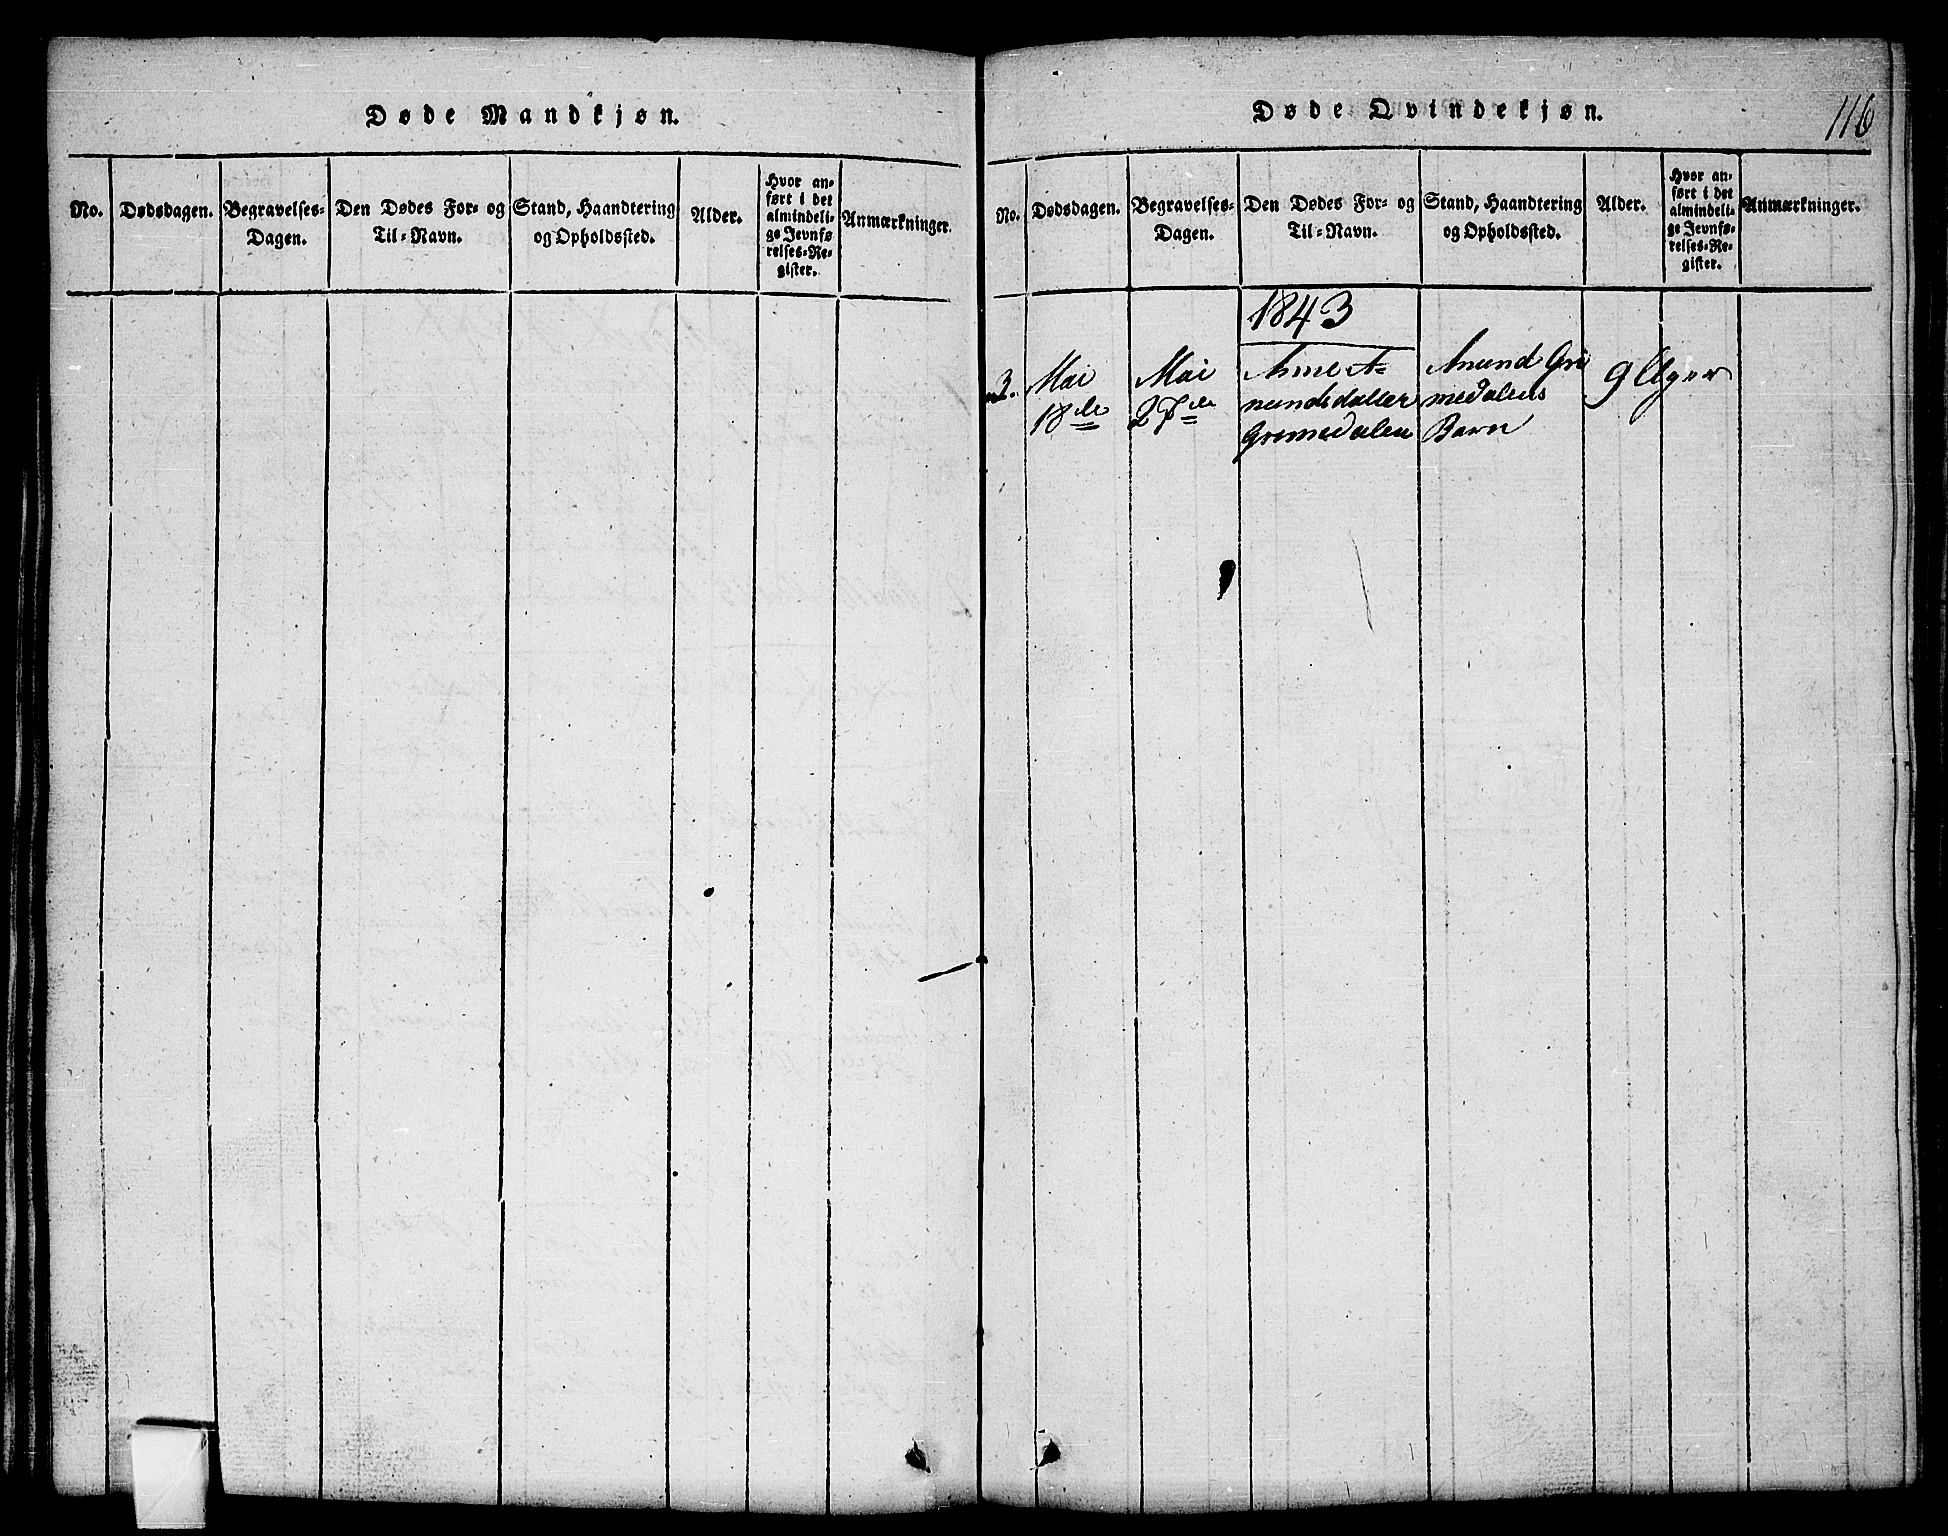 Døde Mandkjøn.
No.
Dødsdagen.
Begravelses-
Dagen.
Den Dødes For- og
Til-Navn.
Stand, Haandtering
og Opholdssted.
Alder.
Hvor an-
ført i det
almindeli-
ge Jevnfø-
relses-Re-
gister.
Anmærkninger.
Døde Qvindekjøn.
116
No.
Dødsdagen.
Begravelses-
Dagen.
Den Dødes For- og
Til-Navn.
Stand, Haandtering
og Opholdssted.
Alder.
Hvor an-
ført i det
almindeli-
ge Jevnfø-
relses-Re-
gister.
Anmærkninger.
1843
3.
Mai
18de
Mai
27de
Anne A-
nundsdatter
Grimedalen
Anund Gri
medalens
Barn
9 Uger